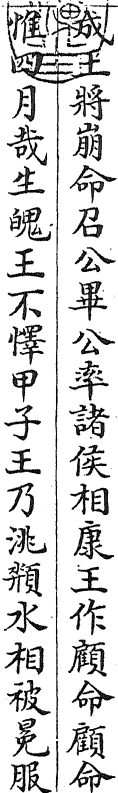 成王將崩命召公畢公率諸侯相康王作顧命顧命
惟四月哉生魄王不懌甲子王乃洮頮水相被冕服